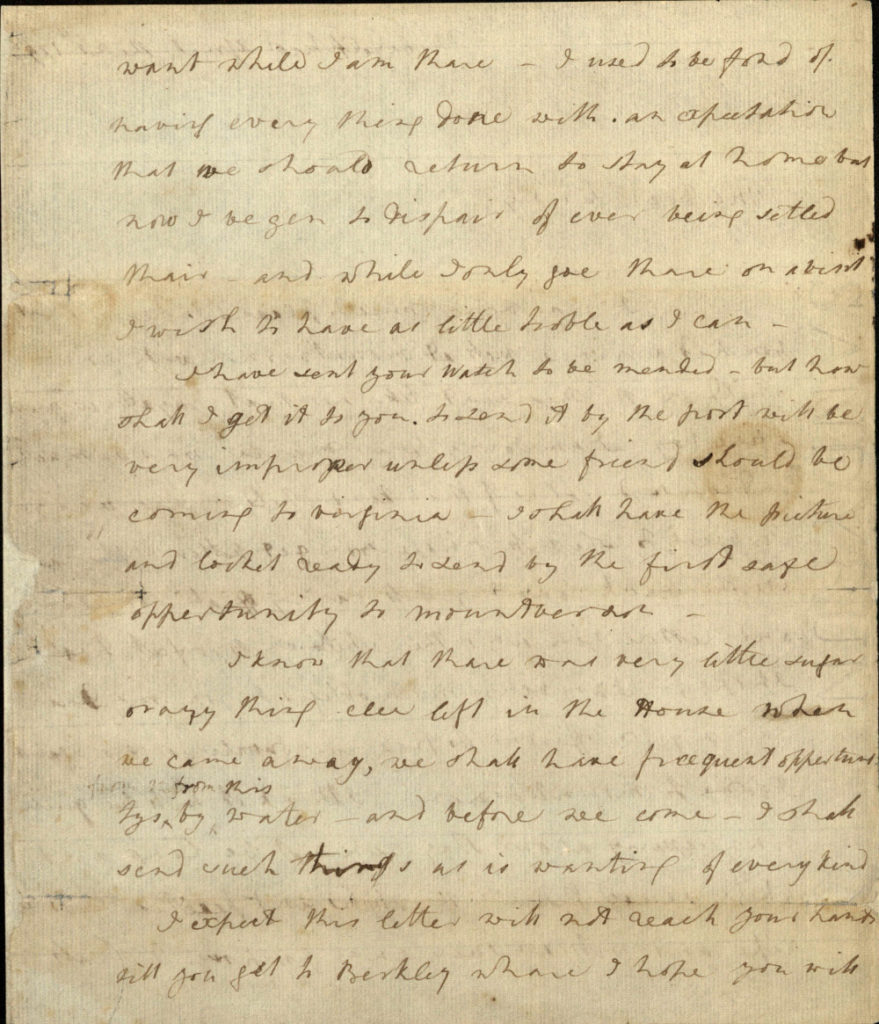 want while I am thare – I used to be fond of
having every thing done with . an expectation
that we should return to stay at home but
now I began to dispair of ever being setled
thair – and while I only goe thare on a visit
I wish to have as little troble as I can –
I have sent your watch to be mended – but how
shall I get it to you. to send it by the post will be
very improper unless some friend should be
coming to virginia – I shall have the picture
and locket ready to send by the first safe
oppertunity to mountvernon –
I know that thare was very little sugar
or any thing elce left in the House when
we came away, we shall have frequent oppertuni
from this
tys, by water – and before we come – I shall
send such things as is wanting of every kind
I expect this letter will not reach your hands
till you get to Berkley whare I hope you will